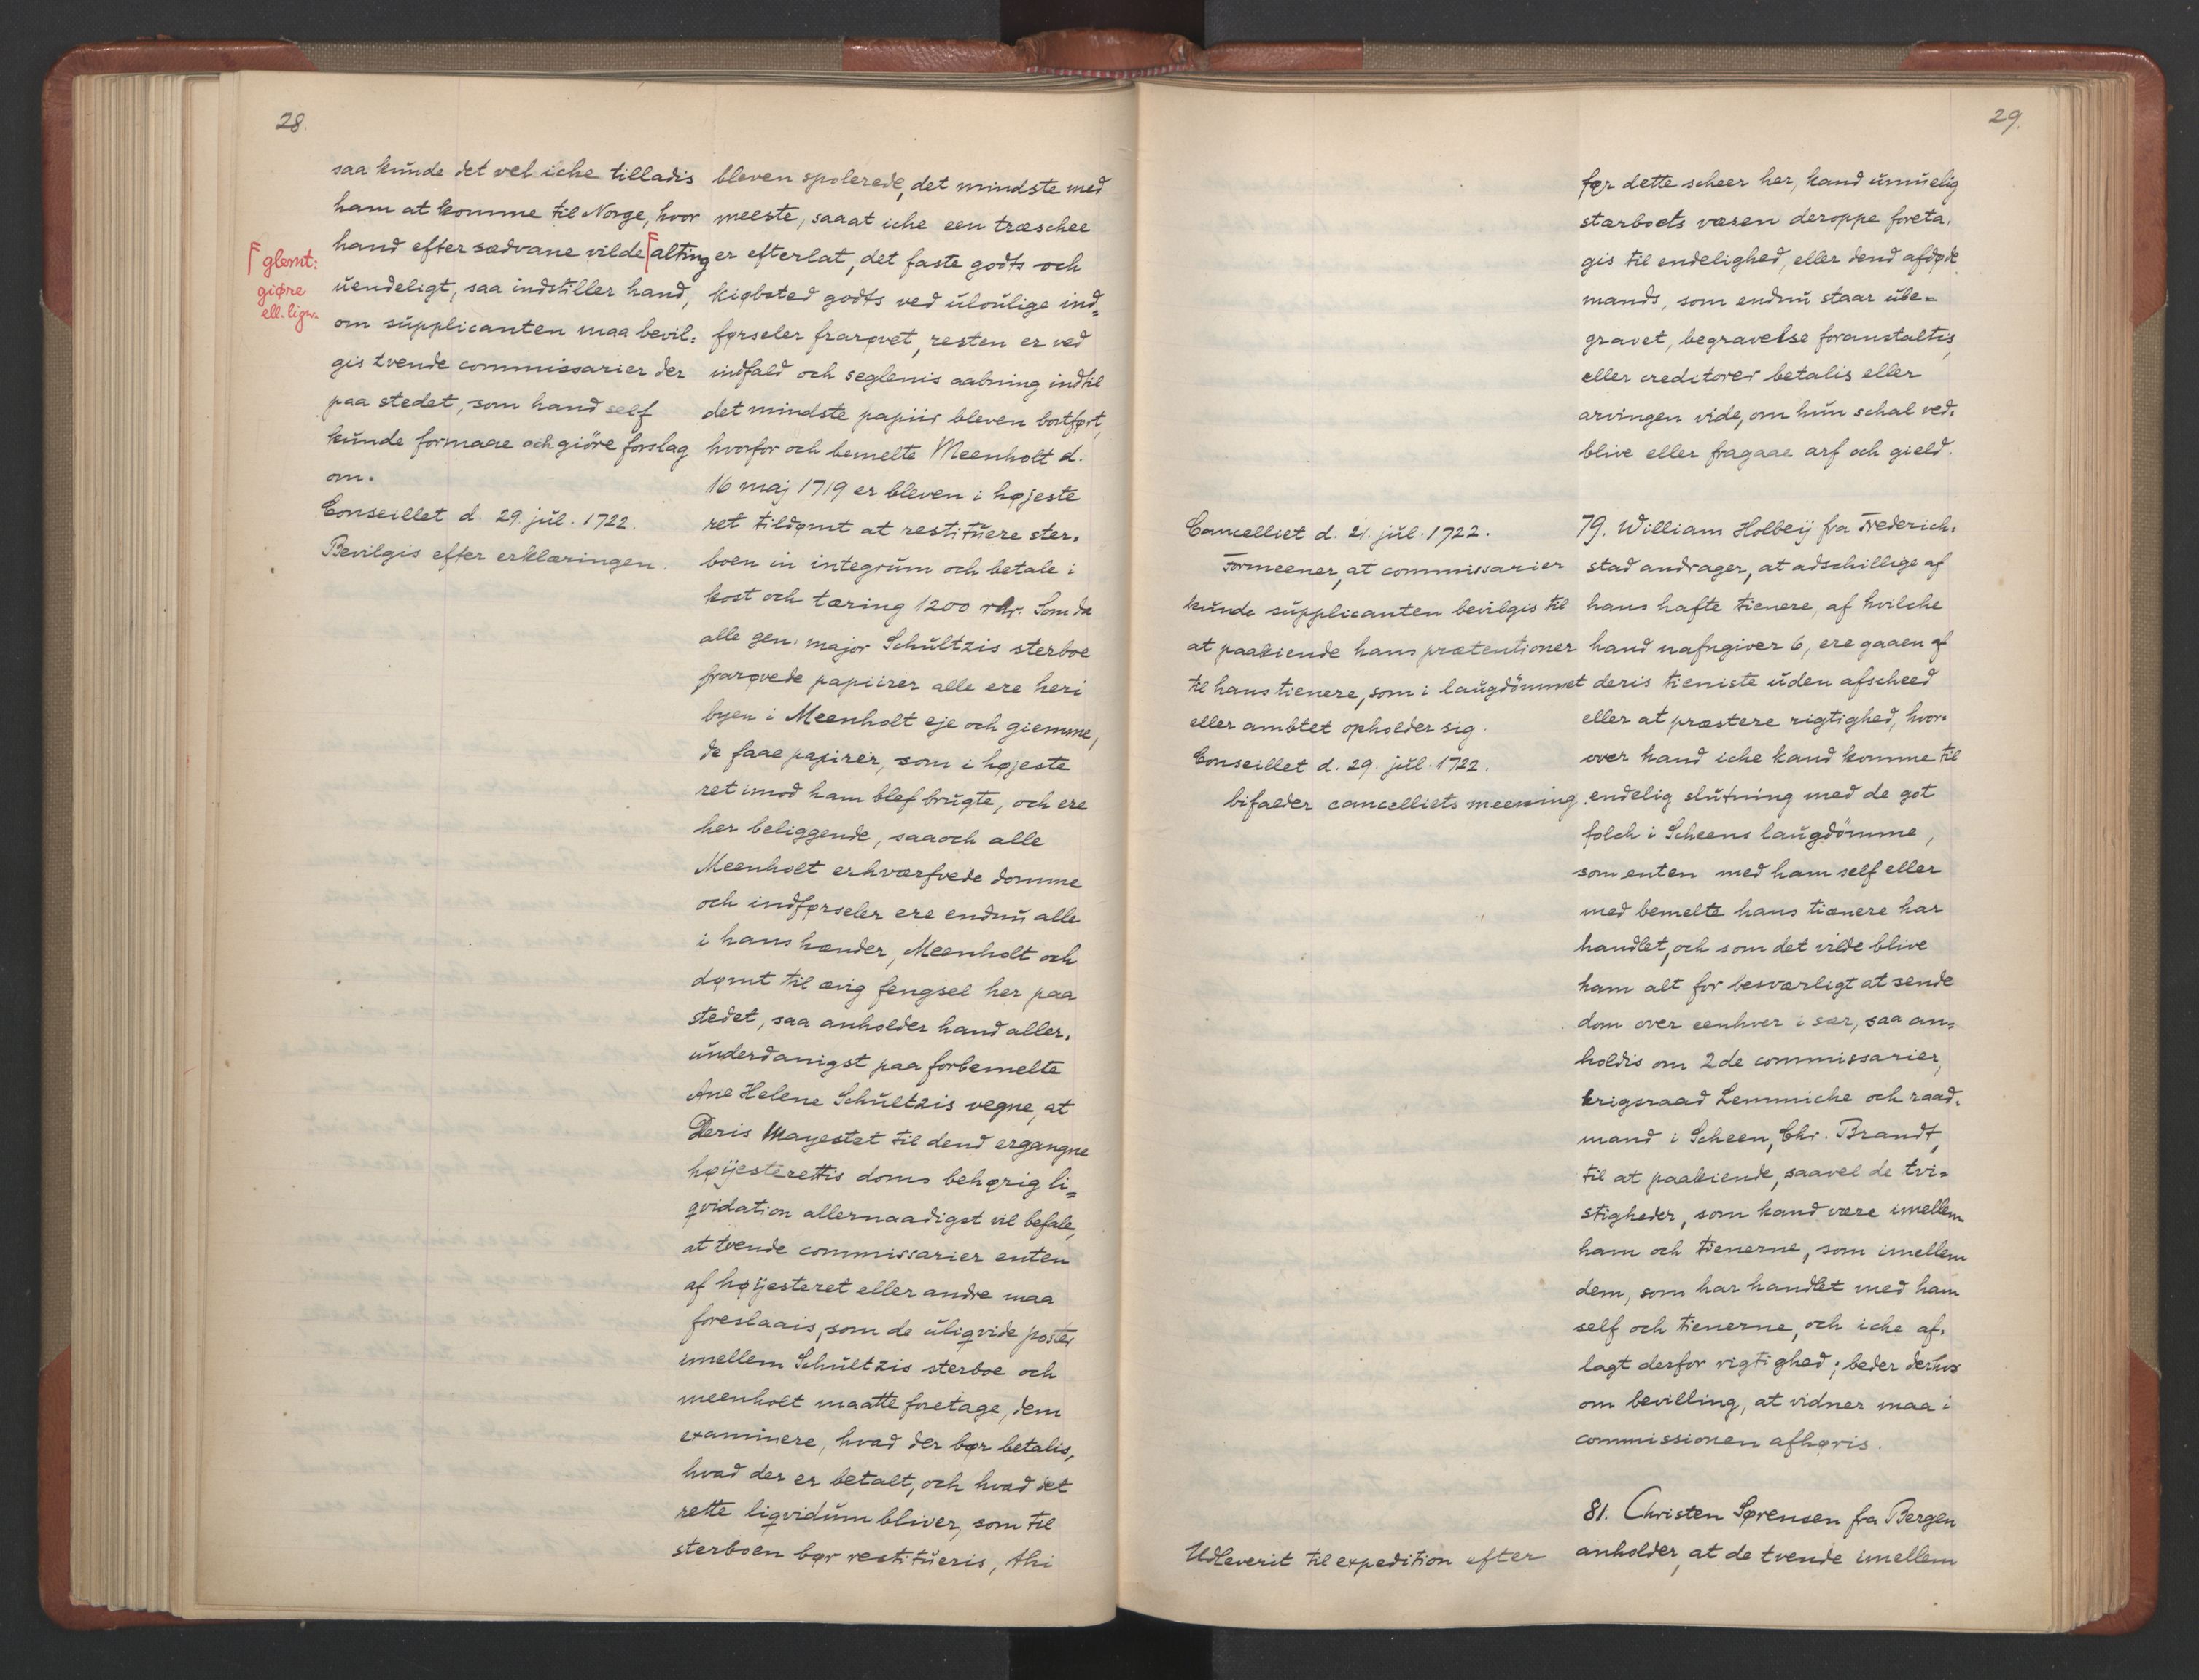 28.
saa kunde det vel iche tilladis
ham at komme til Norge, hvor
hand efter sædvane vilde alting
uendeligt, saa indstiller hand,
om supplicanten maa bevil-
gis tvende commissarier der
paa stedet, som hand self
kunde formaae och giöre forslag
om.
Conseillet d. 29. jul. 1722.
Bevilgis efter erklæringen.
glemt:
giøre
ell. lign.
bleven spolerede, det mindste med
meeste, saaat iche een træschee
er efterlat, det faste godts och
kiøbsted godts ved ulovlige ind-
førseler frarøvet, resten er ved
indfald och seglenis aabning indtil
det mindste papiir bleven bortført,
hvorfor och bemelte Meenholt d.
16 maj 1719 er bleven i højeste
ret tildømt at restituere ster-
boen in integrum och betale i
kost och tæring 1200 rdr. Som da
alle gen. major Schultzis sterboe
frarøvede papiirer alle ere heri
byen i Meenholt eje och giemme,
de faae papirer, som i højeste
ret imod ham blef brugte, och ere
her beliggende, saaoch alle
Meenholt erhværfvede domme
och indførseler ere endnu alle
i hans hænder, Meenholt och
dømt til ævig fengsel her paa
stedet, saa anholder hand aller-
underdanigst paa forbemelte
Ane Helene Schultzis vegne, at
Deris Mayestet til dend ergangne
høijesterettis doms behørig li-
qvidation allernaadigst vil befale,
at tvende commissarier enten
af høijesteret eller andre maa
foreslaais, som de uliqvide poster
imellem Schultzis sterboe och
meenholt maatte foretage, dem
examinere, hvad der bør betalis,
hvad der er betalt, och hvad det
rette liqvidum bliver, som til
sterboen bør restitueris, thi
29.
før dette scheer her, kand umuelig
stærboets væsen deroppe foreta-
gis til endelighed, eller dend afdøde
mands, som endnu staar ube-
gravet, begravelse foranstaltis,
eller creditorer betalis eller
arvingen vide, om hun schal ved-
blive eller fragaae arf och gield.
Cancelliet d. 21. jul. 1722.
Formeener, at commissarier
kunde supplicanten bevilgis til
at paakiende hans prætentioner
til hans tienere, som i laugdömmet
eller ambtet opholder sig.
Conseillet d. 29. jul. 1722.
bifalder cancelliets meening.
79. William Holbeij fra Frederich-
stad andrager, at adschillige af
hans hafte tienere, af hvilche
hand nafngiver 6, ere gaaen af
deris tieniste uden afscheed
eller at præstere rigtighed, hvor-
over hand iche kand komme til
endelig slutning med de got
folch i Scheens laugdömme,
som enten med ham self eller
med bemelte hans tiænere har
handlet, och som det vilde blive
ham alt for besværligt at sende
dom over eenhver i sær, saa an-
holdis om 2de commissarier,
krigsraad Lemmiche och raad-
mand i Scheen, Chr. Brandt,
til at paakiende, saavel de tvi-
stigheder, som kand være imellem
ham och tienerne, som imellem
dem, som har handlet med ham
self och tienerne, och iche af-
lagt derfor rigtighed; beder derhos
om bevilling, at vidner maa i
commissionen afhøris.
Udleverit til expedition efter
81. Christen Sørensen fra Bergen
anholder, at de tvende imellem